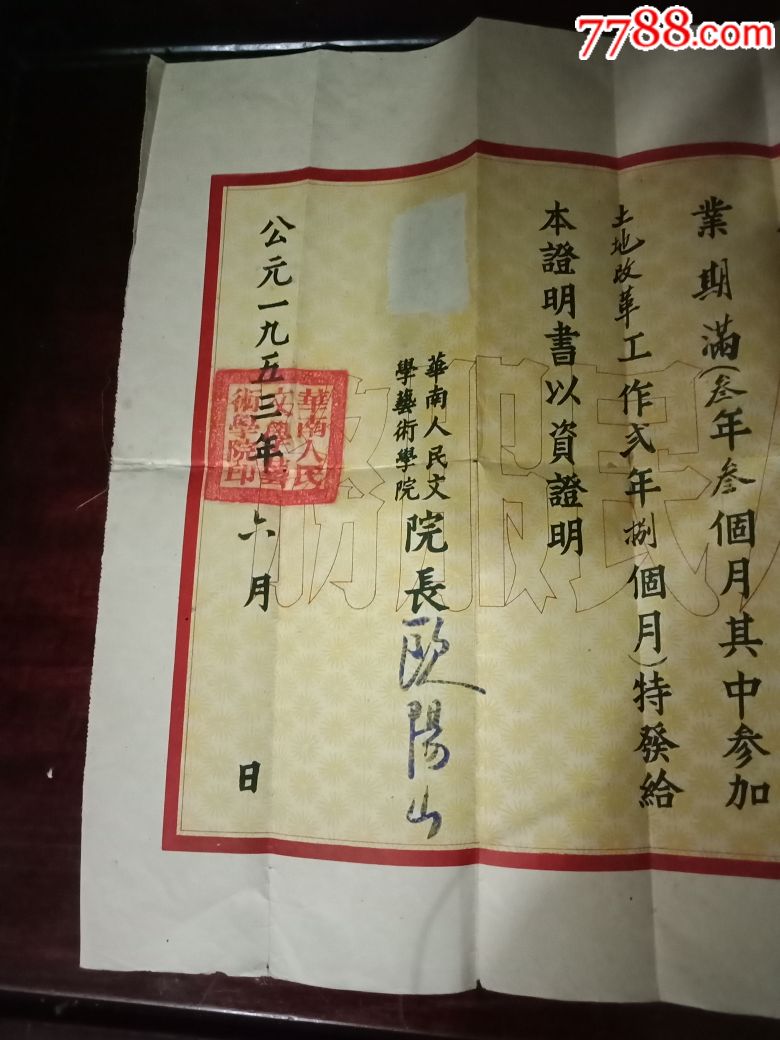 7788.com
業期滿（叁年叁個月其中參加
土地改革工作弍年捌個月）特發給
本證明書以資證明
華南人民文
學藝術學院
院長歐陽山
公元一九五三年六月 日
華南人民
文學藝
術學院印